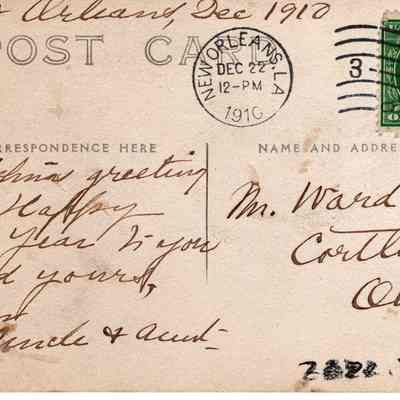 Orleans, Dec 1910
POST CAR
NEW ORLEANS, LA
DEC 22
12-PM
1910
3
RRESPONDENCE HERE
NAME AND ADDRE
greeting
Happy
Year to you
yours,
Uncle & Aunt
Mr. Ward
Cortl
O